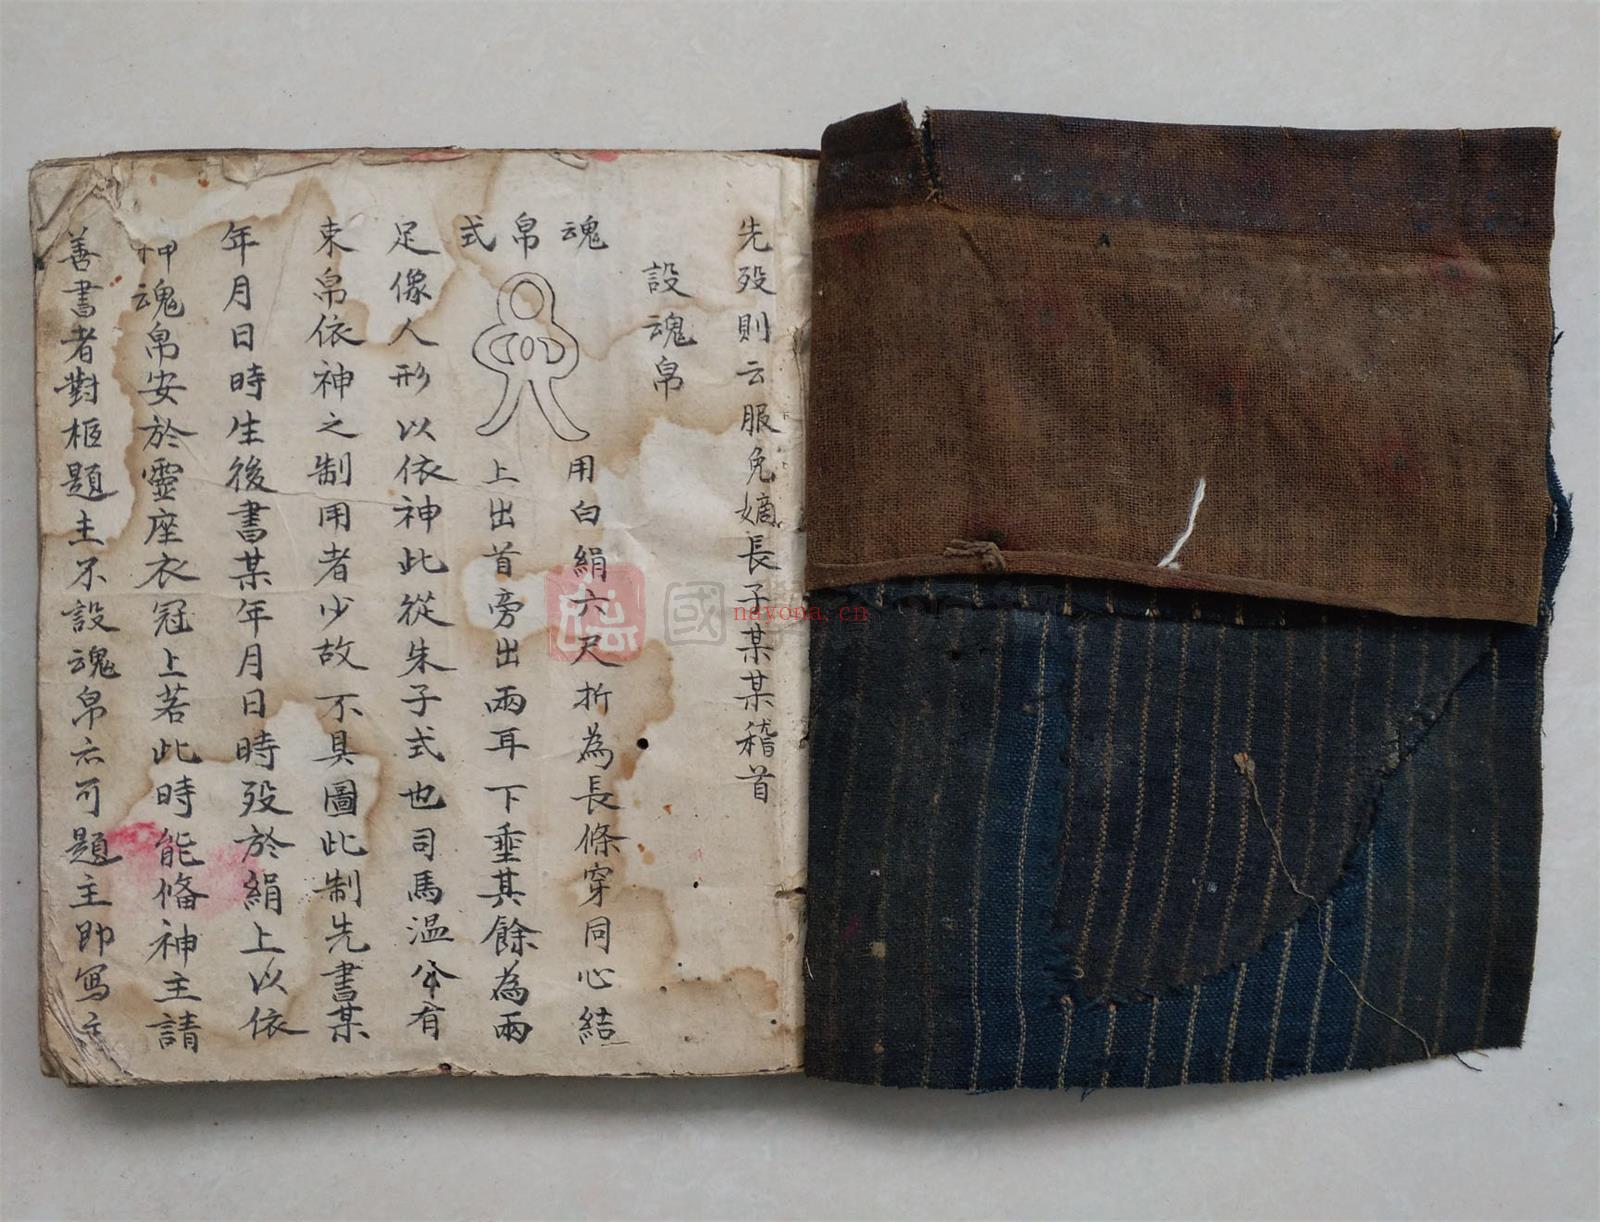 先殁則云服免嫡長子某某稽首
設魂帛
魂帛式
用白絹六尺折為長條穿同心結
上出首旁出兩耳下垂其餘為兩
足像人形以依神此從朱子式也司馬温公有
束帛依神之制用者少故不具圖此制先書某
年月日時生後書某年月日時殁於絹上以依
神魂帛安於靈座衣冠上若此時能俻神主請
善書者對柩題主不設魂帛亦可題主即寫主
國學
nayona.cn